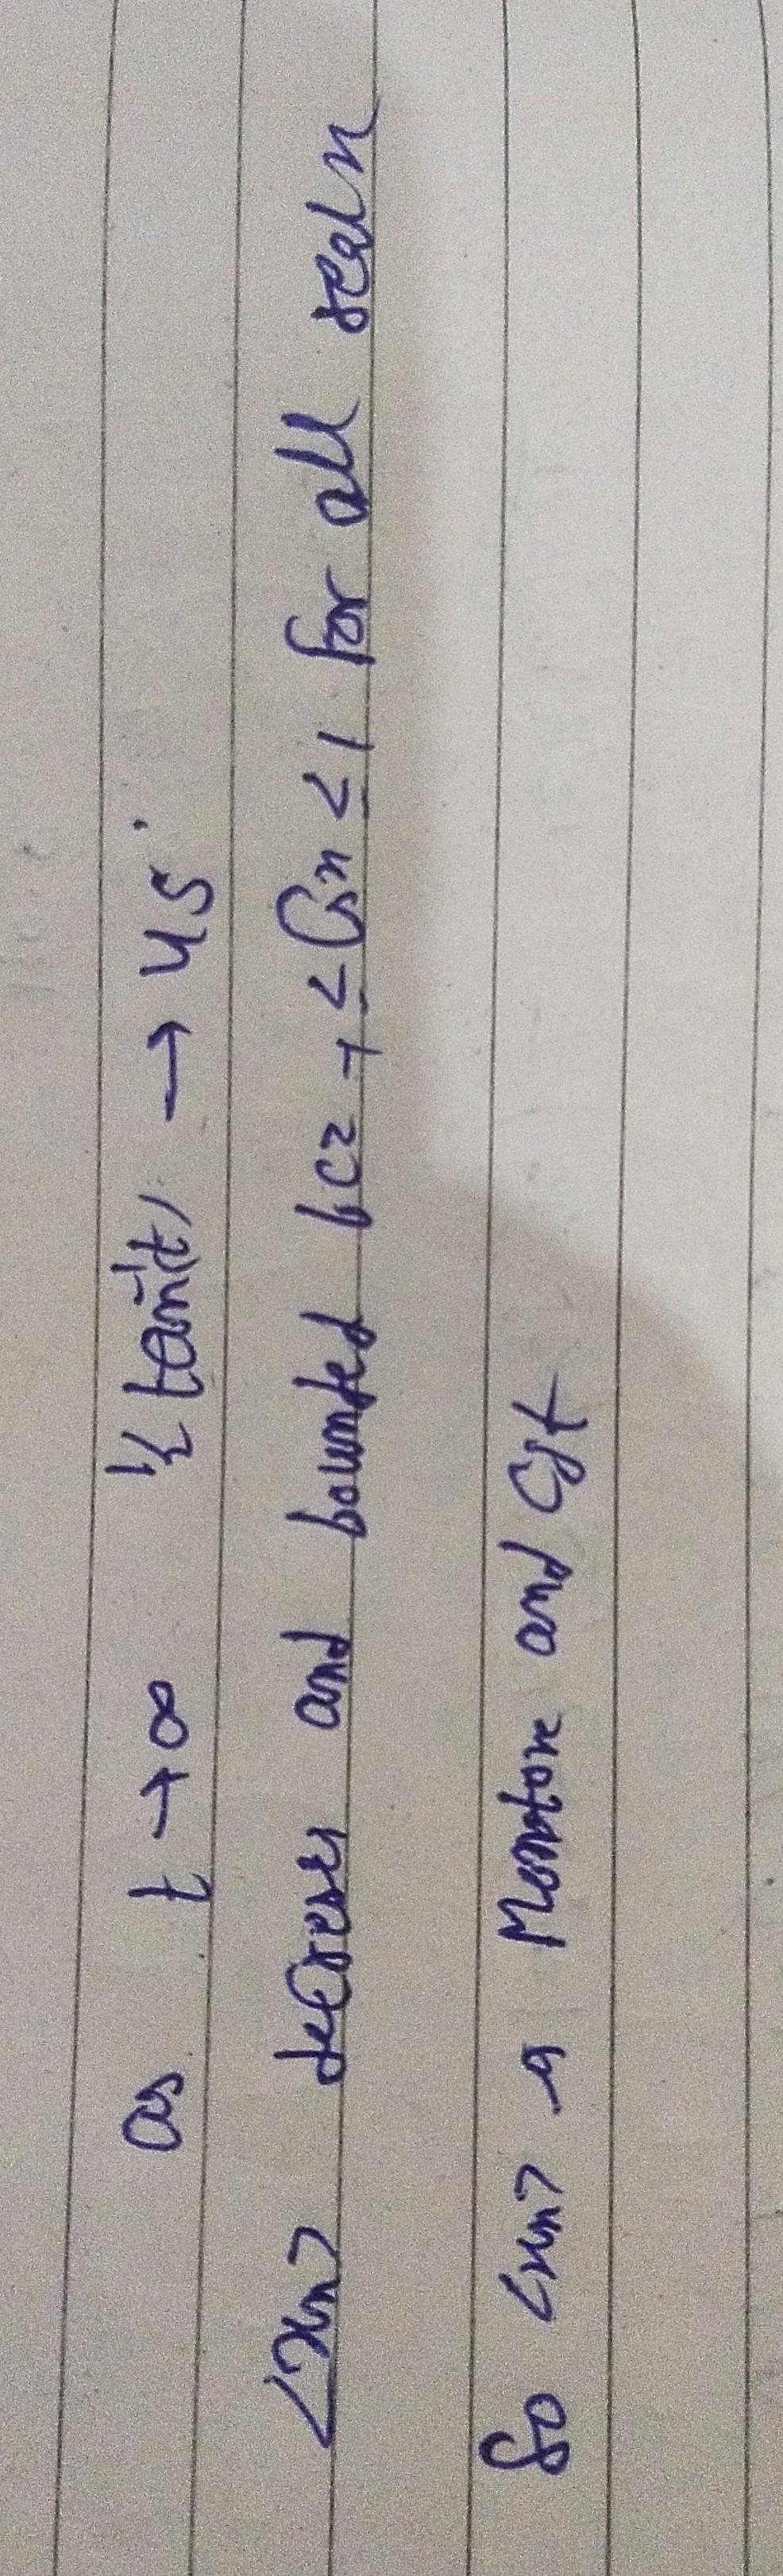 as t → ∞ ½ tan⁻¹(t) → 45°
<xn> decreases and bounded bcz -1 ≤ Cosn ≤ 1 for all real n
So <xn> is Monotone and Cgt